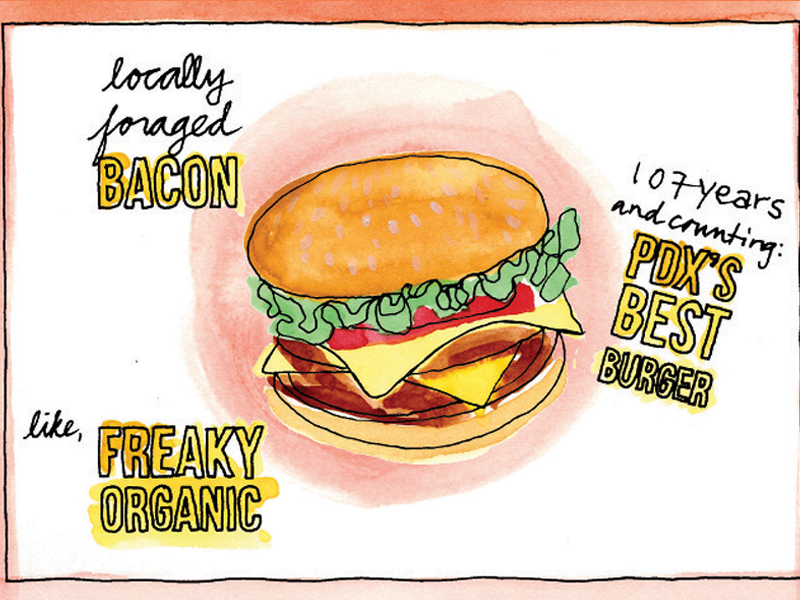 locally
foraged
BACON
107 years
and counting:
PDX'S
BEST
BURGER
like,
FREAKY
ORGANIC